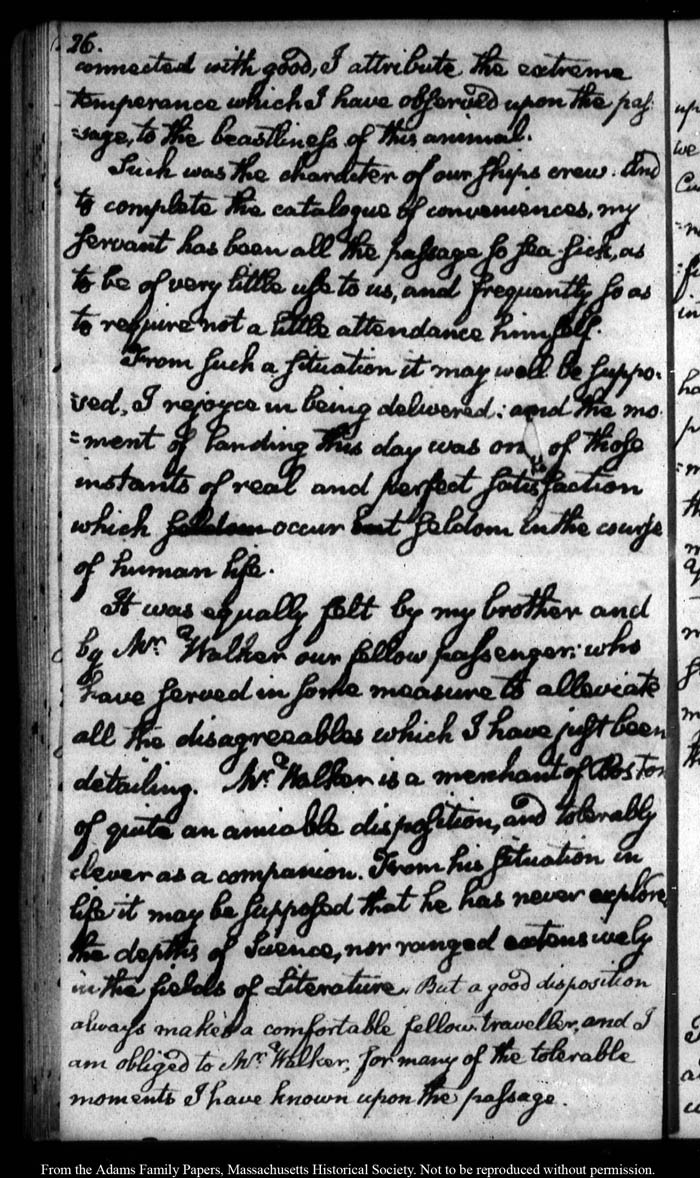 26.
connected with good, I attribute the extreme
temperance which I have observed upon the pas-
=sage, to the beastliness of this animal.
Such was the character of our ships crew. And
to complete the catalogue of conveniences, my
servant has been all the passage so sea-sick, as
to be of very little use to us, and frequently so as
to require not a little attendance himself.
From such a situation it may well be suppo-
=sed, I rejoyce in being delivered: and the mo-
=ment of landing this day was one of those
instants of real and perfect satisfaction
which seldom occur but seldom in the course
of human life.
It was equally felt by my brother and
by Mr. Walker our fellow passenger: who
have served in some measure to alleviate
all the disagreeables which I have just been
detailing. Mr. Walker is a merchant of Boston
of quite an amiable disposition, and tolerably
clever as a companion. From his situation in
life it may be supposed that he has never explored
the depths of Science, nor ranged extensively
in the fields of Literature. But a good disposition
always makes a comfortable fellow-traveller, and I
am obliged to Mr. Walker, for many of the tolerable
moments I have known upon the passage.
From the Adams Family Papers, Massachusetts Historical Society. Not to be reproduced without permission.